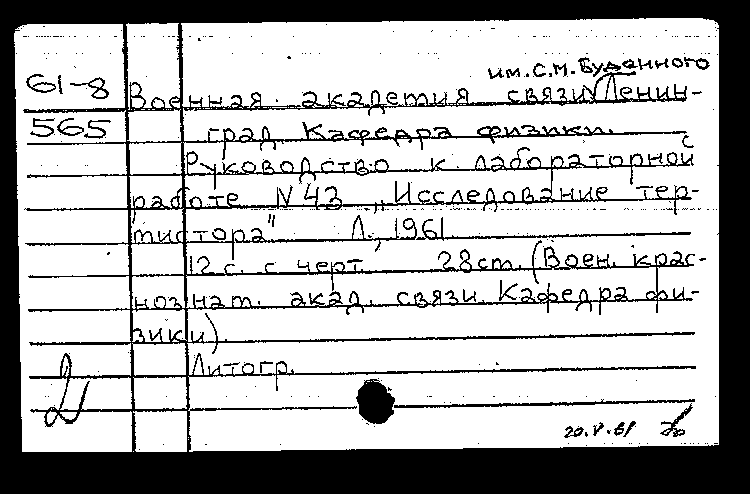 им. С.М. Буденного
61-8 Военная академия связи Ленин-
565 град Кафедра физики.
Руководство к лабораторной
работе N 43 „Исследование тер-
мистора" Л., 1961
12 с. с черт. 28 см. (Воен. крас-
нознат. акад. связи. Кафедра фи-
зики).
Литогр.
2
20.V.61